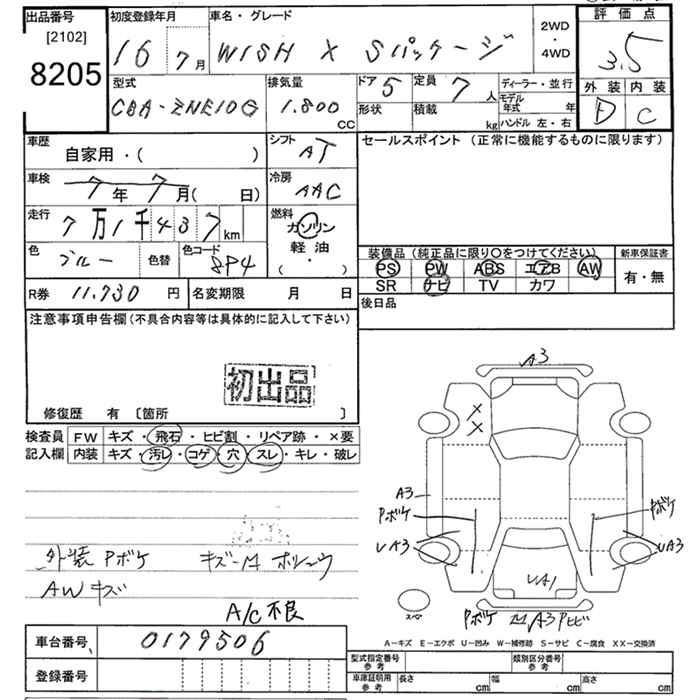 出品番号
[2102]
8205
初度登録年月
16 7月
車名・グレード
WISH X Sパッケージ
2WD
・
4WD
評価点
3.5
外装 内装
D C
型式
CBA-ZNE10G
排気量
1.800
CC
ドア 5
定員 7 人
形状
積載 kg
ディーラー・並行
モデル年式 年
ハンドル 左・右
車歴
自家用・( )
シフト
AT
車検
7年 7月( 日)
冷房
AAC
走行
7万1千437km
燃料
ガソリン
軽・油
( ・ )
色
ブルー
色替
色コード
8P4
R券 11.730 円
名変期限 月 日
セールスポイント (正常に機能するものに限ります)
装備品 (純正品に限り〇をつけてください)
PS PW ABS エアB AW
SR ナビ TV カワ
新車保証書
有・無
後日品
注意事項申告欄(不具合内容等は具体的に記入して下さい)
初出品
修復歴 有 〔箇所 〕
検査員
記入欄
FW キズ・飛石・ヒビ割・リペア跡・×要
内装 キズ・汚レ・コゲ・穴・スレ・キレ・破レ
外装 Pボケ
AWキズ
A/C不良
A3
×
×
A3
Pボケ
UA3
Pボケ
UA3
UA1
スペア
Pボケ
A3 Pヒビ
A-キズ E-エクボ U-凹み W-補修跡 S-サビ C-腐食 XX-交換済
車台番号 0179506
登録番号
型式指定番号
参考
類別区分番号
参考
車庫証明用
参考
長さ cm
幅 cm
高さ cm